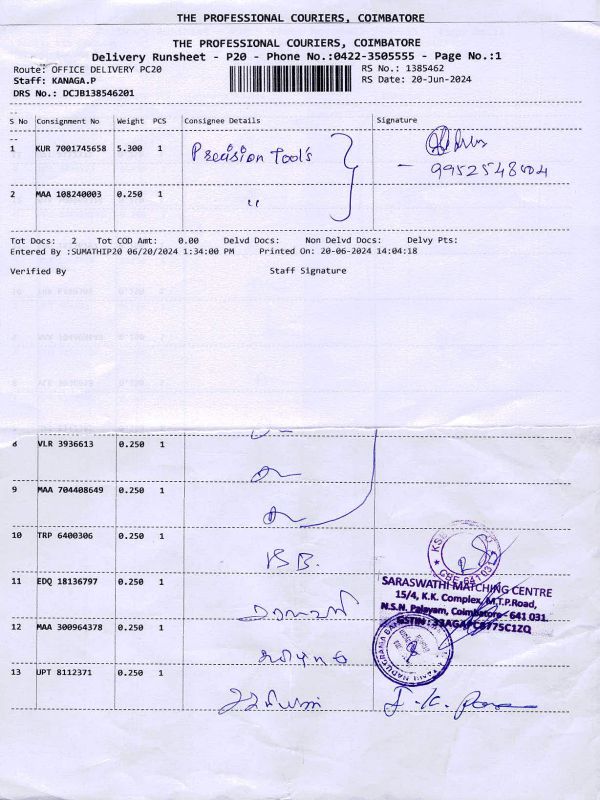 THE PROFESSIONAL COURIERS, COIMBATORE
THE PROFESSIONAL COURIERS, COIMBATORE
Delivery Runsheet - P20 - Phone No.:0422-3505555 - Page No.:1
Route: OFFICE DELIVERY PC20 RS No.: 1385462
Staff: KANAGA.P RS Date: 20-Jun-2024
DRS No.: DCJB138546201
S No Consignment No Weight PCS Consignee Details Signature
1 KUR 7001745658 5.300 1 Precision Tool's
2 MAA 108240003 0.250 1 "
Tot Docs: 2 Tot COD Amt: 0.00 Delvd Docs: Non Delvd Docs: Delvy Pts:
Entered By :SUMATHIP20 06/20/2024 1:34:00 PM Printed On: 20-06-2024 14:04:18
Verified By Staff Signature
8 VLR 3936613 0.250 1
9 MAA 704408649 0.250 1
10 TRP 6400306 0.250 1
11 EDQ 18136797 0.250 1
SARASWATHI MATCHING CENTRE
15/4, K.K. Complex, M.T.P.Road,
N.S.N. Palayam, Coimbatore - 641 031.
12 MAA 300964378 0.250 1
13 UPT 8112371 0.250 1